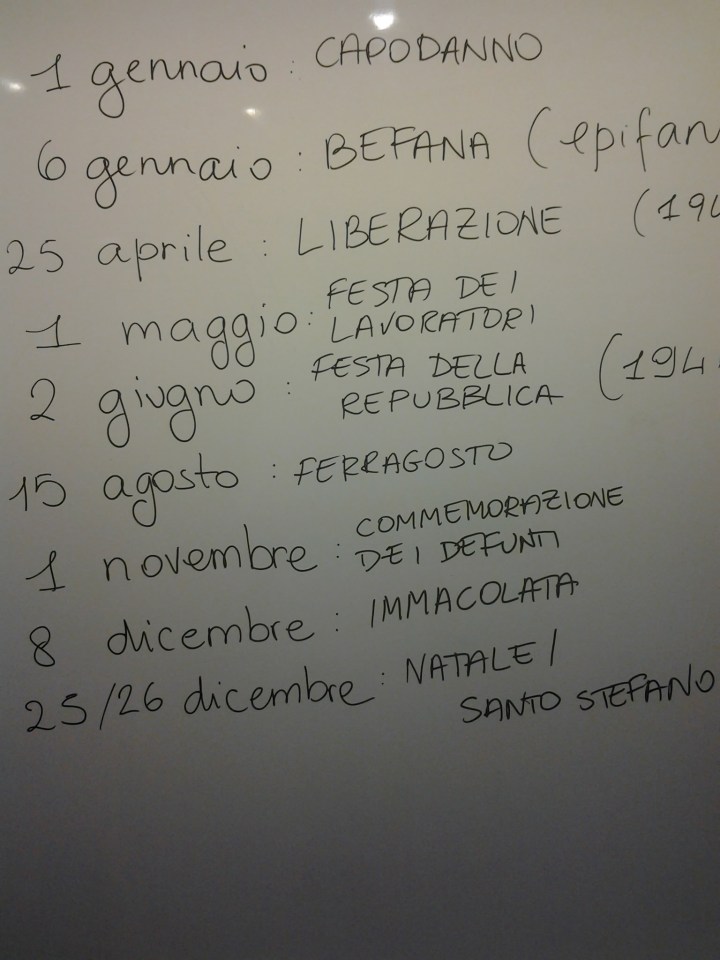 1 gennaio : CAPODANNO
6 gennaio : BEFANA (epifan
25 aprile : LIBERAZIONE (194
1 maggio : FESTA DEI
LAVORATORI
2 giugno : FESTA DELLA
REPUBBLICA (194
15 agosto : FERRAGOSTO
1 novembre : COMMEMORAZIONE
DEI DEFUNTI
8 dicembre : IMMACOLATA
25/26 dicembre : NATALE/
SANTO STEFANO